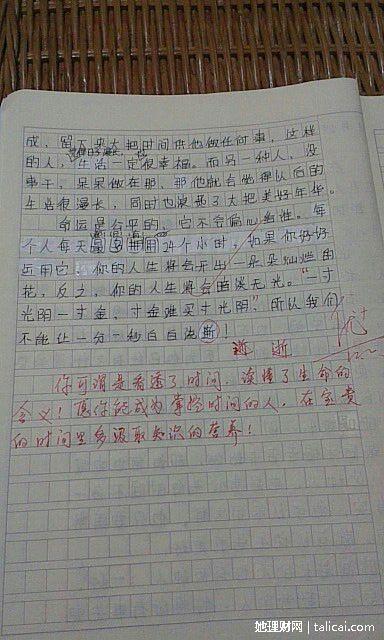 成，留下来大把时间供他做任何事，这样
的人，生活一定很幸福。而另一种人，没
事干，呆呆做在那，那他就会觉得以后的
生活很漫长，同时也浪费了大把美好年华。
命运是公平的，它不会偏心谁。每
个人每天 24个小时，如果你好好
运用它，你的人生将会开出一朵朵灿烂的
花，反之，你的人生将会暗淡无光。"一寸
光阴一寸金，寸金难买寸光阴"，所以我们
不能让一分一秒白白流逝！
逝 逝
优+
12.2
你可谓是看透了时间，读懂了生命的
含义！愿你能成为掌控时间的人，在宝贵
的时间里多汲取知识的营养！
她理财网 | talicai.com